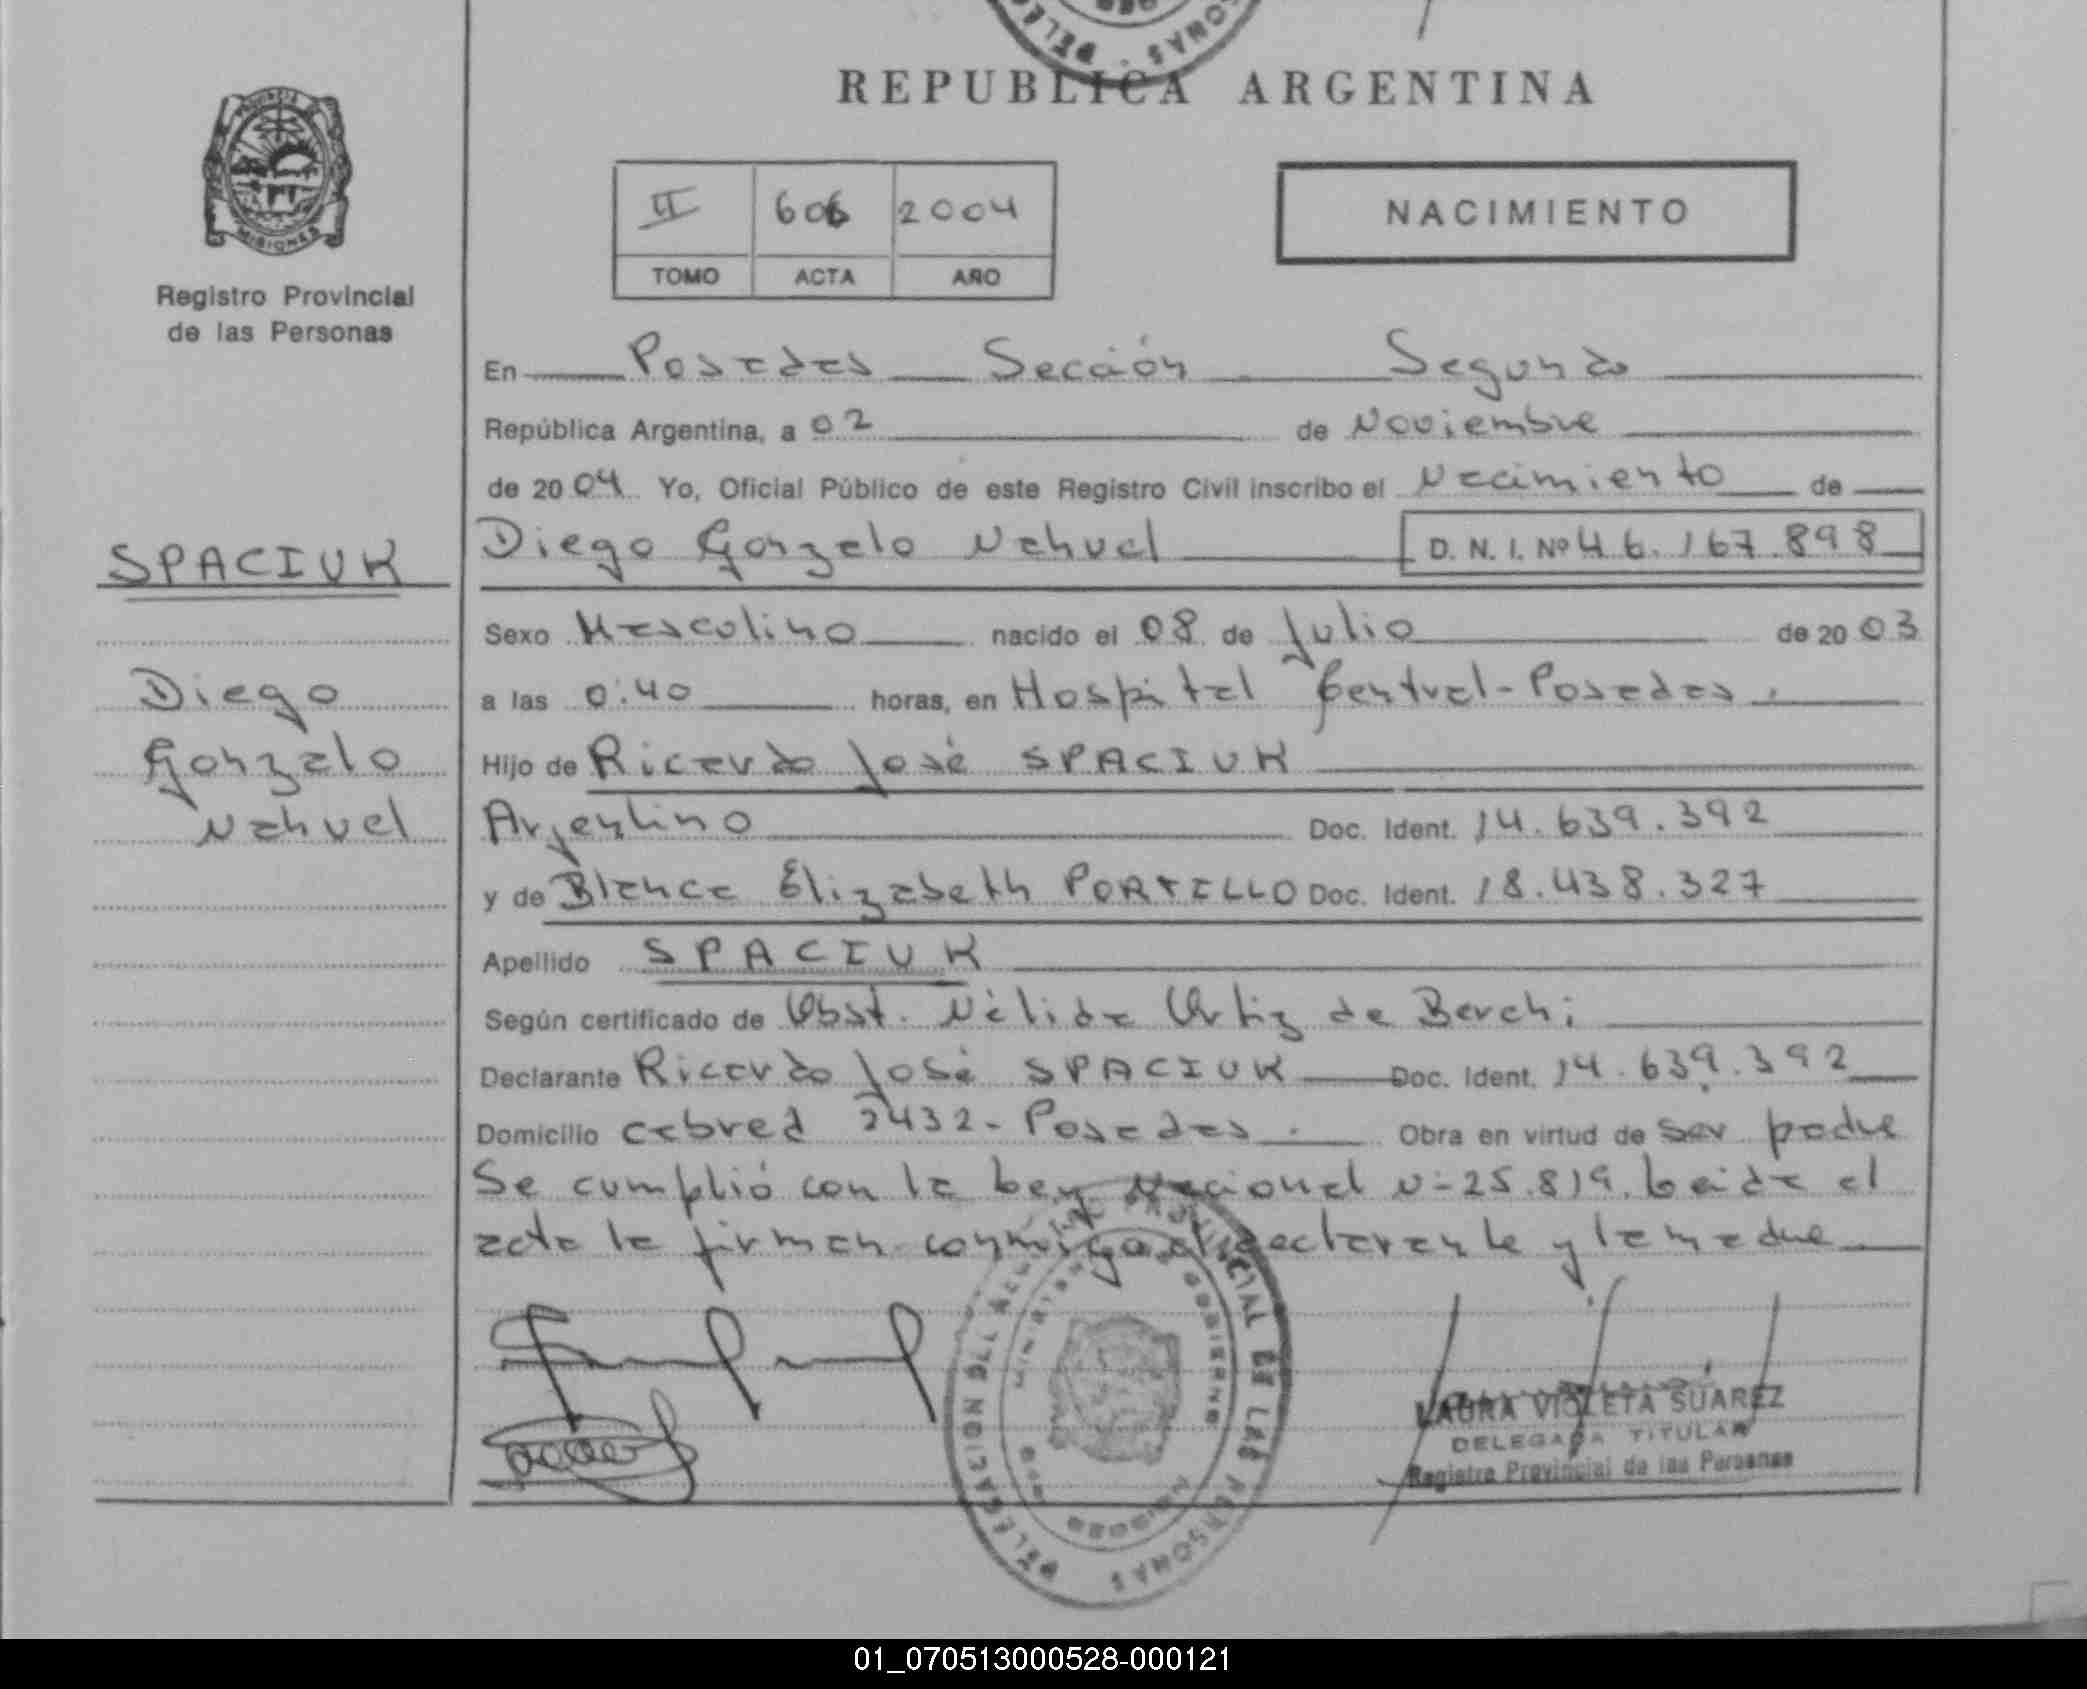 REPUBLICA ARGENTINA
MISIONES
Registro Provincial
de las Personas
II 606 2004
TOMO ACTA AÑO
NACIMIENTO
En Posadas Sección Segunda
República Argentina, a 02 de Noviembre
de 2004 Yo, Oficial Público de este Registro Civil inscribo el Nacimiento de
Diego Gonzalo Nahuel D. N. I. Nº 46.167.898
SPACIUK
Diego
Gonzalo
Nahuel
Sexo Masculino nacido el 08 de Julio de 2003
a las 0:40 horas, en Hospital Central-Posadas.
Hijo de Ricardo José SPACIUK
Argentino Doc. Ident. 14.639.392
y de Blanca Elizabeth PORTILLO Doc. Ident. 18.438.327
Apellido SPACIUK
Según certificado de Obst. Nélida Ortiz de Berchi
Declarante Ricardo José SPACIUK Doc. Ident. 14.639.392
Domicilio cabred 2432- Posadas. Obra en virtud de ser padre
Se cumplió con la Ley Nacional Nº 25.819. Leida el
acta la firman conmigo el declarante y la madre
PROVINCIAL DE LAS PERSONAS
DELEGACION
MINISTERIO DE GOBIERNO
MISIONES
LAURA VIOLETA SUAREZ
DELEGADA TITULAR
Registro Provincial de las Personas
01_070513000528-000121